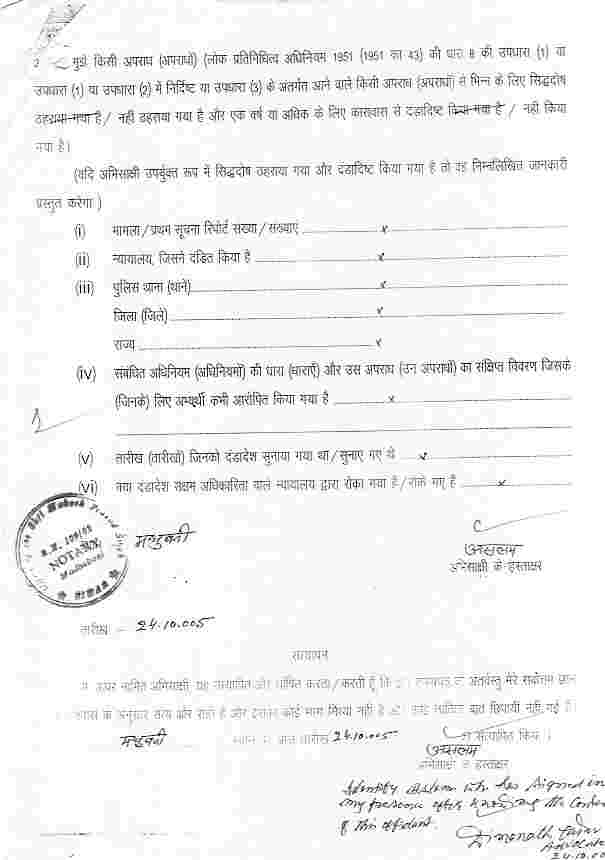 2. मुझे किसी अपराध (अपराधों) (लोक प्रतिनिधित्व अधिनियम 1951 (1951 का 43) की धारा 8 की उपधारा (1) या
उपधारा (1) या उपधारा (2) में निर्दिष्ट या उपधारा (3) के अंतर्गत आने वाले किसी अपराध (अपराधों) से भिन्न के लिए सिद्धदोष
ठहराया गया है / नहीं ठहराया गया है और एक वर्ष या अधिक के लिए कारावास से दंडादिष्ट किया गया है / नहीं किया
गया है।
(यदि अभिसाक्षी उपर्युक्त रूप में सिद्धदोष ठहराया गया और दंडादिष्ट किया गया है तो वह निम्नलिखित जानकारी
प्रस्तुत करेगा )
(i) मामला/प्रथम सूचना रिपोर्ट संख्या/संख्याएं x
(ii) न्यायालय, जिसने दंडित किया है x
(iii) पुलिस थाना (थाने) x
जिला (जिले) x
राज्य x
(iv) संबंधित अधिनियम (अधिनियमों) की धारा (धाराएँ) और उस अपराध (उन अपराधों) का संक्षिप्त विवरण जिसके
(जिनके) लिए अभ्यर्थी कभी आरोपित किया गया है x
(v) तारीख (तारीखों) जिनको दंडादेश सुनाया गया था/सुनाए गए थे x
(vi) क्या दंडादेश सक्षम अधिकारिता वाले न्यायालय द्वारा रोका गया है/रोके गए है x
NOTARY
Madhubani
BIHAR
मधुबनी
असलम
अभिसाक्षी के हस्ताक्षर
तारीख - 24.10.005
सत्यापन
ऊपर नामित अभिसाक्षी यह सत्यापित और घोषित करता/करती हूँ कि अंतर्वस्तु मेरे सर्वोत्तम ज्ञान
के अनुसार सत्य और सही है और इसका कोई भाग मिथ्या नहीं है बात छिपायी नहीं गई है।
मधुबनी स्थान पर आज तारीख 24.10.005 को सत्यापित किया।
असलम
अभिसाक्षी के हस्ताक्षर
Identify aslam who has signed in
my presence after the
of this affidavit.
Advocate
24.10.00